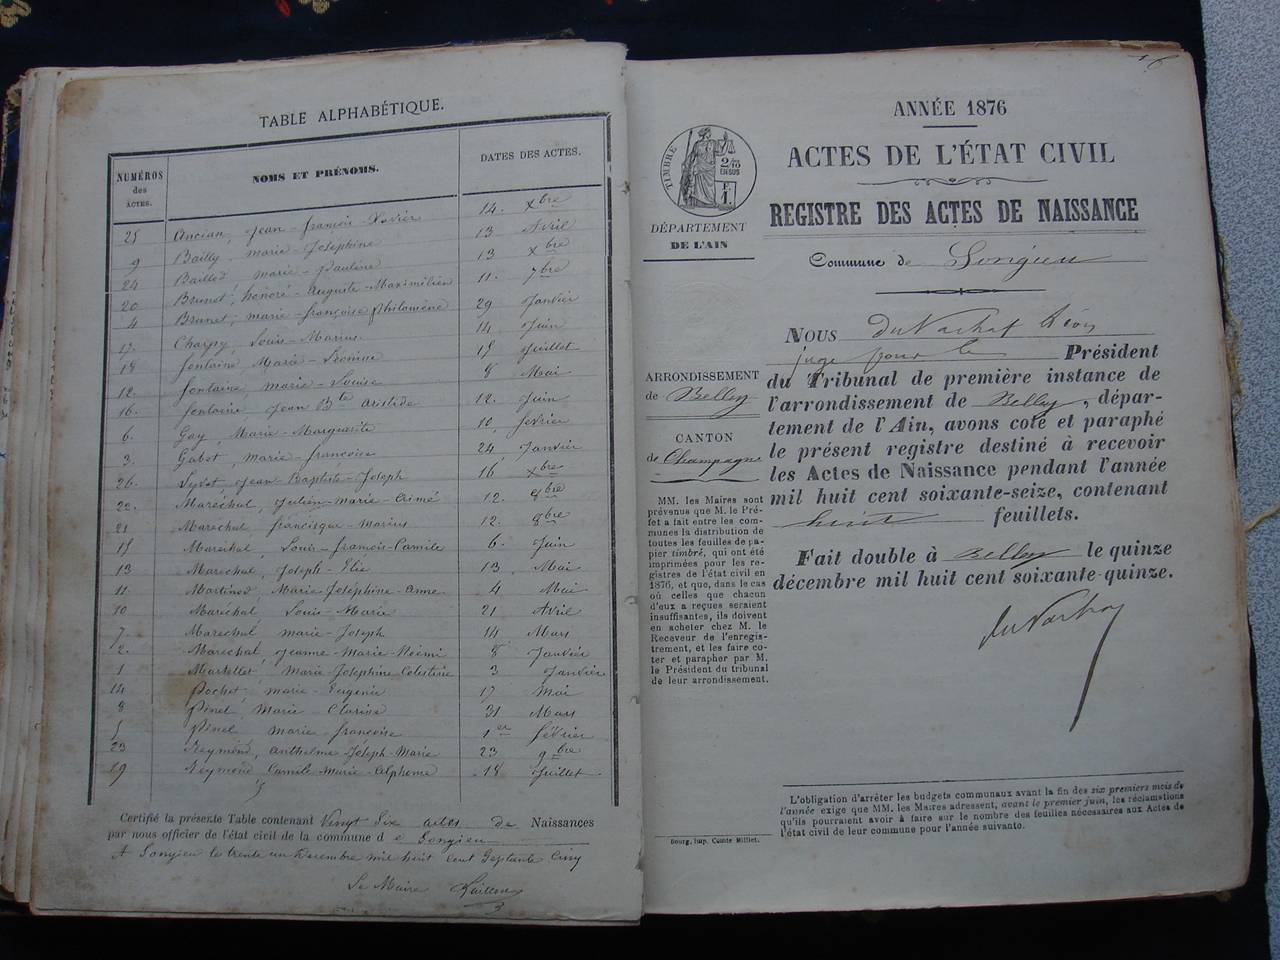 TABLE ALPHABÉTIQUE.
NUMÉROS des ACTES.
NOMS ET PRÉNOMS.
DATES DES ACTES.
25 Ancian, Jean-françois-Xavier 14. Xbre
9 Bailly, marie-Joséphine 13 Avril
24 Baillod, marie-Pauline 13 Xbre
20 Brunet, honoré-Auguste-Maximilien 11. 7bre
4 Brunet, marie-françoise philomène 29 Janvier
17. Charpy, Louis-Marius 14 Juin
18 fontaine, Marie-Léonine 15 Juillet
12. fontaine, marie-Louise 8 Mai
16. fontaine, Jean Bte Aristide 12. Juin
6. Goy, Marie-Marguerite 10, février
3. Gabet, marie-françoise 24, Janvier
26. Jean Baptiste-Joseph 16 Xbre
22. Maréchal, Julien-marie-Aimé 12. 9bre
21 Maréchal francisque-Marius 12. 8bre
15 Maréchal, Louis-françois-Camile 6. Juin
13 Maréchal, Joseph-Elie 13. Mai
11 Martinod, Marie Joséphine-Anne 4 Mai
10 Maréchal Louis-Marie 21 Avril
7. Maréchal marie-Joseph 14 Mars
2. Maréchal, Jeanne-Marie-Noémi 8 Janvier
1 Martellet, Marie-Josephine-Célestine 3 Janvier
14 Pochet, marie-Eugénie 17 Mai
8 Pinel, Marie-Clarisse 31 Mars
5 Pinel marie françoise 1er février
23 Reymond, Anthelme-Joseph-Marie 23 9bre
19 Reymond, Camile-Marie-Alphonse 18 Juillet
Certifié la présente Table contenant Vingt Six actes de Naissances
par nous officier de l'état civil de la commune de Songieu
A Songieu le trente un Décembre mil huit cent Septante Cinq
Le Maire
ANNÉE 1876
ACTES DE L'ÉTAT CIVIL
REGISTRE DES ACTES DE NAISSANCE
Commune de Songieu
TIMBRE
2/10 EN SUS
F. 1.
DÉPARTEMENT
DE L'AIN
ARRONDISSEMENT
de Belley
CANTON
de Champagne
MM. les Maires sont
prévenus que M. le Pré-
fet a fait entre les com-
munes la distribution de
toutes les feuilles de pa-
pier timbré, qui ont été
imprimées pour les re-
gistres de l'état civil en
1876, et que, dans le cas
où celles que chacun
d'eux a reçues seraient
insuffisantes, ils doivent
en acheter chez M. le
Receveur de l'enregis-
trement, et les faire co-
ter et parapher par M.
le Président du tribunal
de leur arrondissement.
NOUS
juge pour le Président
du Tribunal de première instance de
l'arrondissement de Belley, dépar-
tement de l'Ain, avons coté et paraphé
le présent registre destiné à recevoir
les Actes de Naissance pendant l'année
mil huit cent soixante-seize, contenant
huit feuillets.
Fait double à Belley le quinze
décembre mil huit cent soixante-quinze.
L'obligation d'arrêter les budgets communaux avant la fin des six premiers mois de
l'année exige que MM. les Maires adressent, avant le premier juin, les réclamations
qu'ils pourraient avoir à faire sur le nombre des feuilles nécessaires aux Actes de
l'état civil de leur commune pour l'année suivante.
Bourg, imp. Comte Milliet.